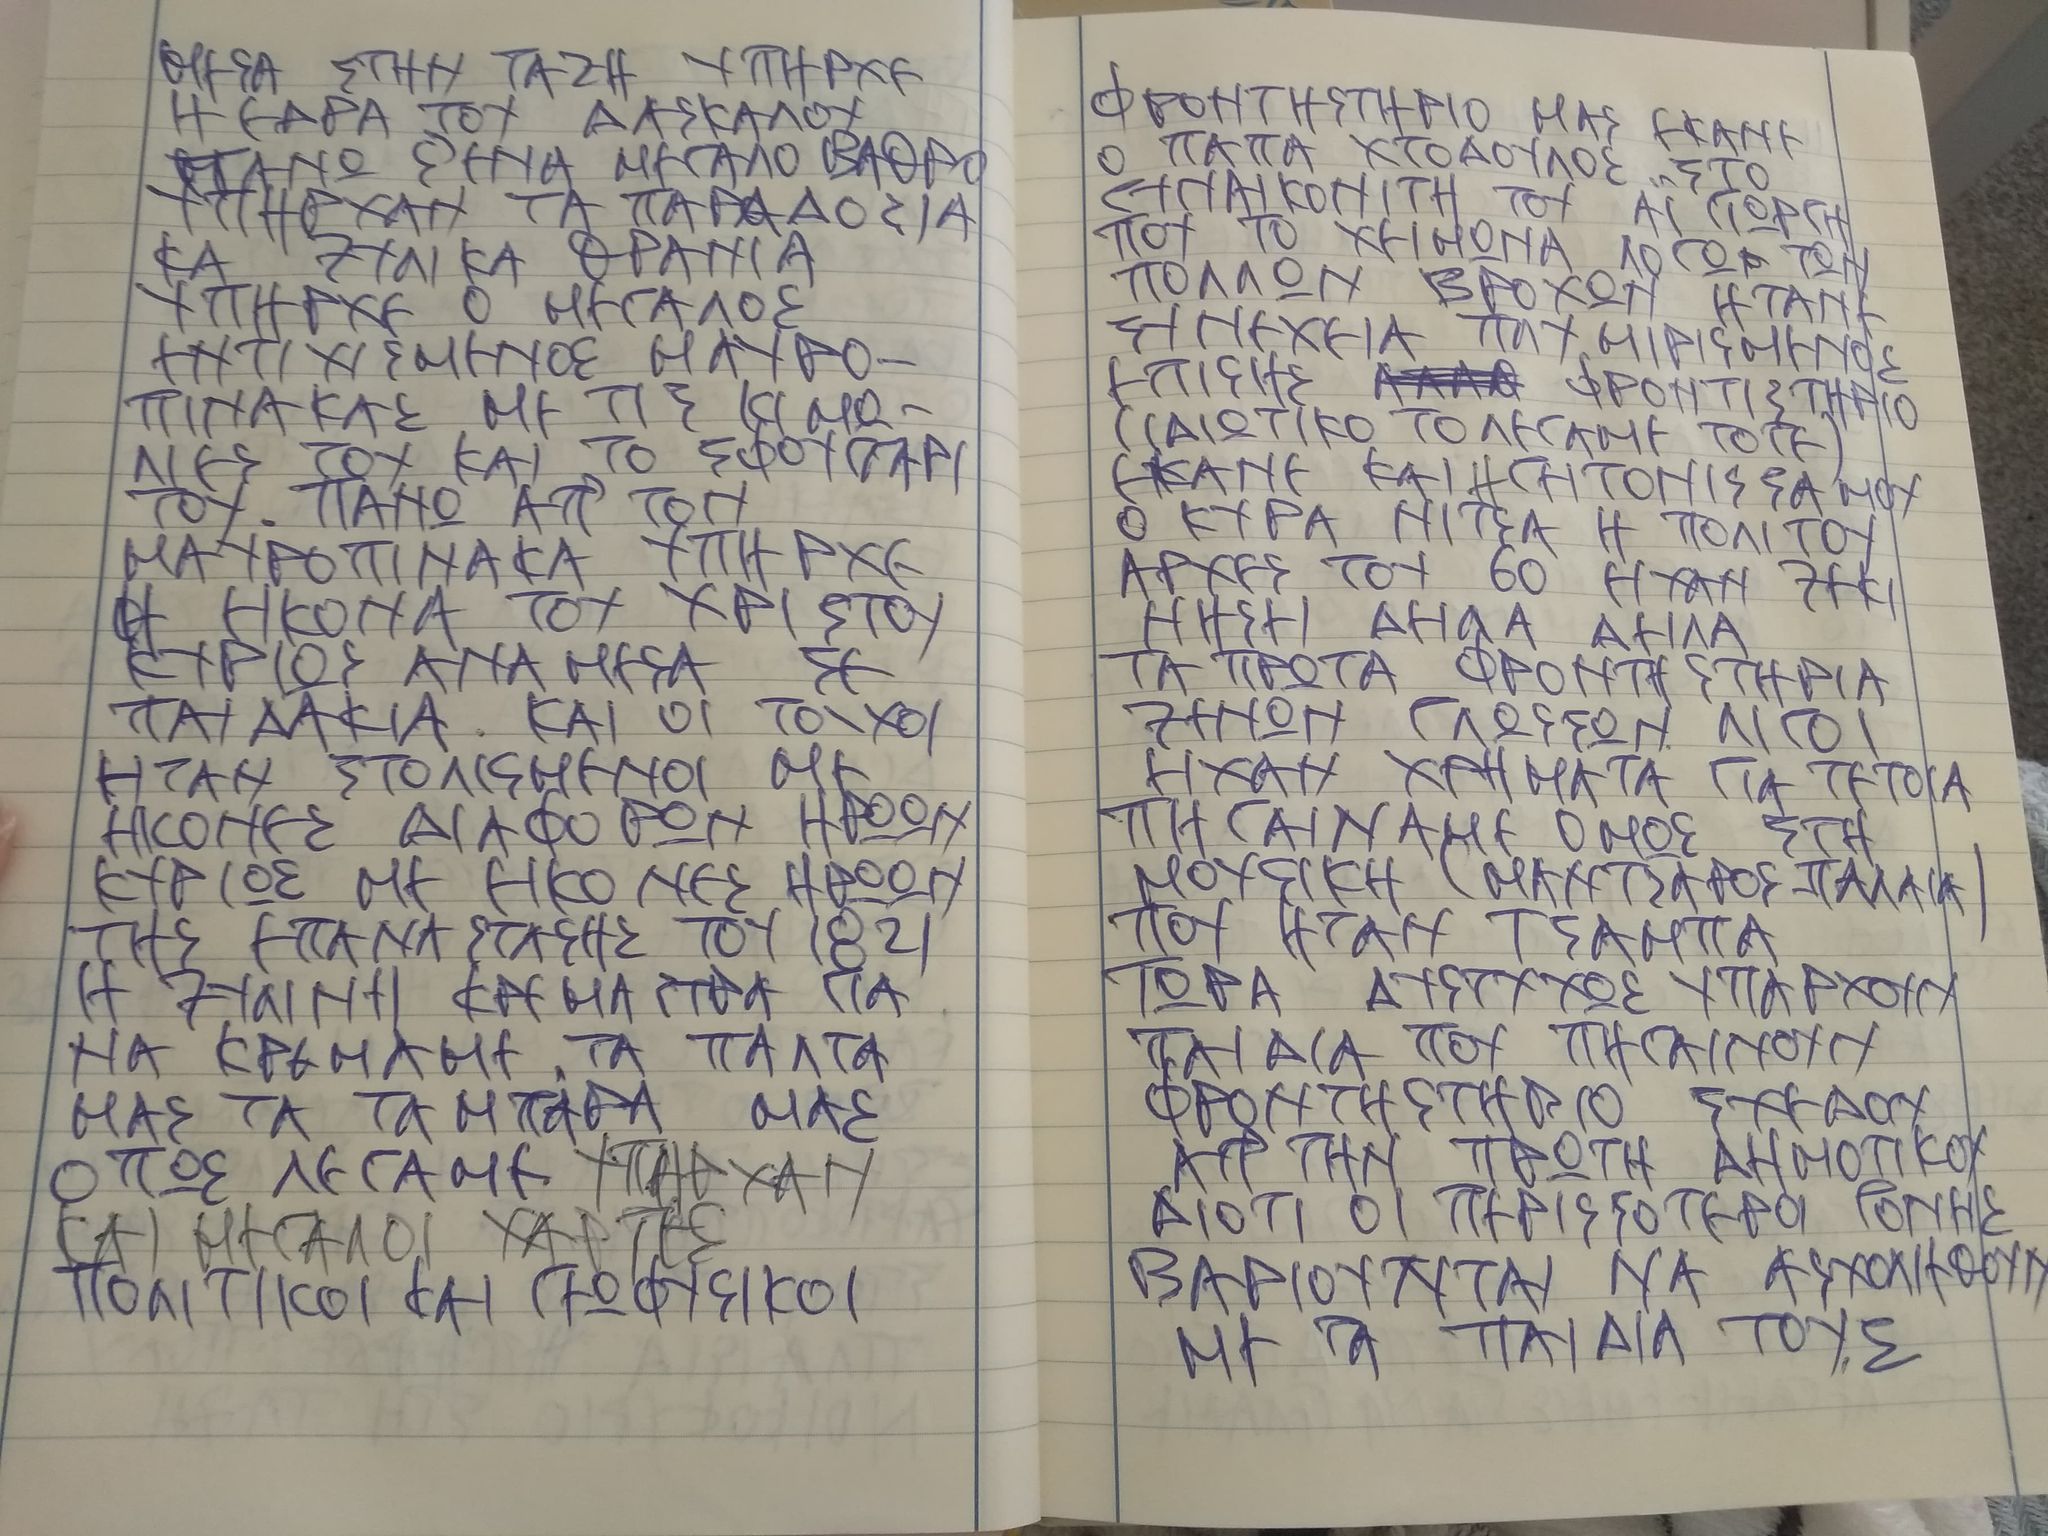 ΜΕΣΑ ΣΤΗΝ ΤΑΞΗ ΥΠΗΡΧΕ
Η ΕΔΡΑ ΤΟΥ ΔΑΣΚΑΛΟΥ
ΠΑΝΩ ΣΕΝΑ ΜΕΓΑΛΟ ΒΑΘΡΟ
ΥΠΗΡΧΑΝ ΤΑ ΠΑΡΑΔΟΣΙΑ
ΚΑ ΞΥΛΙΚΑ ΘΡΑΝΙΑ
ΥΠΗΡΧΕ Ο ΜΕΓΑΛΟΣ
ΕΝΤΙΧΙΣΜΕΝΟΣ ΜΑΥΡΟ-
ΠΙΝΑΚΑΣ ΜΕ ΤΙΣ ΚΙΜΩ-
ΛΙΕΣ ΤΟΥ ΚΑΙ ΤΟ ΣΦΟΥΓΓΑΡΙ
ΤΟΥ. ΠΑΝΩ ΑΠ' ΤΟΝ
ΜΑΥΡΟΠΙΝΑΚΑ ΥΠΗΡΧΕ
Η ΗΚΟΝΑ ΤΟΥ ΧΡΙΣΤΟΥ
ΚΥΡΙΩΣ ΑΝΑΜΕΣΑ ΣΕ
ΠΑΙΔΑΚΙΑ. ΚΑΙ ΟΙ ΤΟΙΧΟΙ
ΗΤΑΝ ΣΤΟΛΙΣΜΕΝΟΙ ΜΕ
ΗΚΟΝΕΣ ΔΙΑΦΟΡΩΝ ΗΡΩΩΝ
ΚΥΡΙΩΣ ΜΕ ΕΙΚΟΝΕΣ ΗΡΩΩΝ
ΤΗΣ ΕΠΑΝΑΣΤΑΣΗΣ ΤΟΥ 1821
Η ΞΥΛΙΝΗ ΚΡΕΜΑΣΤΡΑ ΓΙΑ
ΝΑ ΚΡΕΜΑΜΕ ΤΑ ΠΑΛΤΑ
ΜΑΣ ΤΑ ΤΑΜΠΑΡΑ ΜΑΣ
ΟΠΩΣ ΛΕΓΑΜΕ ΥΠΗΡΧΑΝ
ΚΑΙ ΜΕΓΑΛΟΙ ΧΑΡΤΕΣ
ΠΟΛΙΤΙΚΟΙ ΚΑΙ ΓΕΩΦΥΣΙΚΟΙ
ΦΡΟΝΤΗΣΤΗΡΙΟ ΜΑΣ ΕΚΑΝΕ
Ο ΠΑΠΑ ΧΤΟΔΟΥΛΟΣ ΣΤΟ
ΓΗΝΑΙΚΟΝΙΤΗ ΤΟΥ ΑΪ ΓΙΩΡΓΗ
ΠΟΥ ΤΟ ΧΕΙΜΩΝΑ ΛΟΓΩ ΤΩΝ
ΠΟΛΛΩΝ ΒΡΟΧΩΝ ΗΤΑΝΕ
ΣΙΝΕΧΕΙΑ ΠΛΥΜΙΡΙΣΜΕΝΟΣ
ΕΠΙΣΗΣ ΦΡΟΝΤΙΣΤΗΡΙΟ
(ΙΔΙΩΤΙΚΟ ΤΟ ΛΕΓΑΜΕ ΤΟΤΕ)
ΕΚΑΝΕ ΚΑΙ Η ΓΗΤΟΝΙΣΣΑ ΜΟΥ
Ο ΚΥΡΑ ΝΙΤΣΑ Η ΠΟΛΙΤΟΥ
ΑΡΧΕΣ ΤΟΥ 60 ΗΧΑΝ ΞΕΚΙ
ΝΗΣΕΙ ΔΗΛΑ ΔΗΛΑ
ΤΑ ΠΡΩΤΑ ΦΡΟΝΤΗΣΤΗΡΙΑ
ΞΕΝΩΝ ΓΛΩΣΣΩΝ ΛΙΓΟΙ
ΗΧΑΝ ΧΡΗΜΑΤΑ ΓΙΑ ΤΕΤΟΙΑ
ΠΗΓΑΙΝΑΜΕ ΟΜΩΣ ΣΤΗ
ΜΟΥΣΙΚΗ (ΜΑΝΤΖΑΡΟΣ-ΠΑΛΑΙΑ)
ΠΟΥ ΗΤΑΝ ΤΣΑΜΠΑ
ΤΩΡΑ ΔΥΣΤΥΧΩΣ ΥΠΑΡΧΟΥΝ
ΠΑΙΔΙΑ ΠΟΥ ΠΗΓΑΙΝΟΥΝ
ΦΡΟΝΤΗΣΤΗΡΙΟ ΣΧΕΔΟΝ
ΑΠ' ΤΗΝ ΠΡΩΤΗ ΔΗΜΟΤΙΚΟΥ
ΔΙΟΤΙ ΟΙ ΠΕΡΙΣΣΟΤΕΡΟΙ ΓΟΝΗΣ
ΒΑΡΙΟΥΝΤΑΙ ΝΑ ΑΣΧΟΛΗΘΟΥΝ
ΜΕ ΤΑ ΠΑΙΔΙΑ ΤΟΥΣ